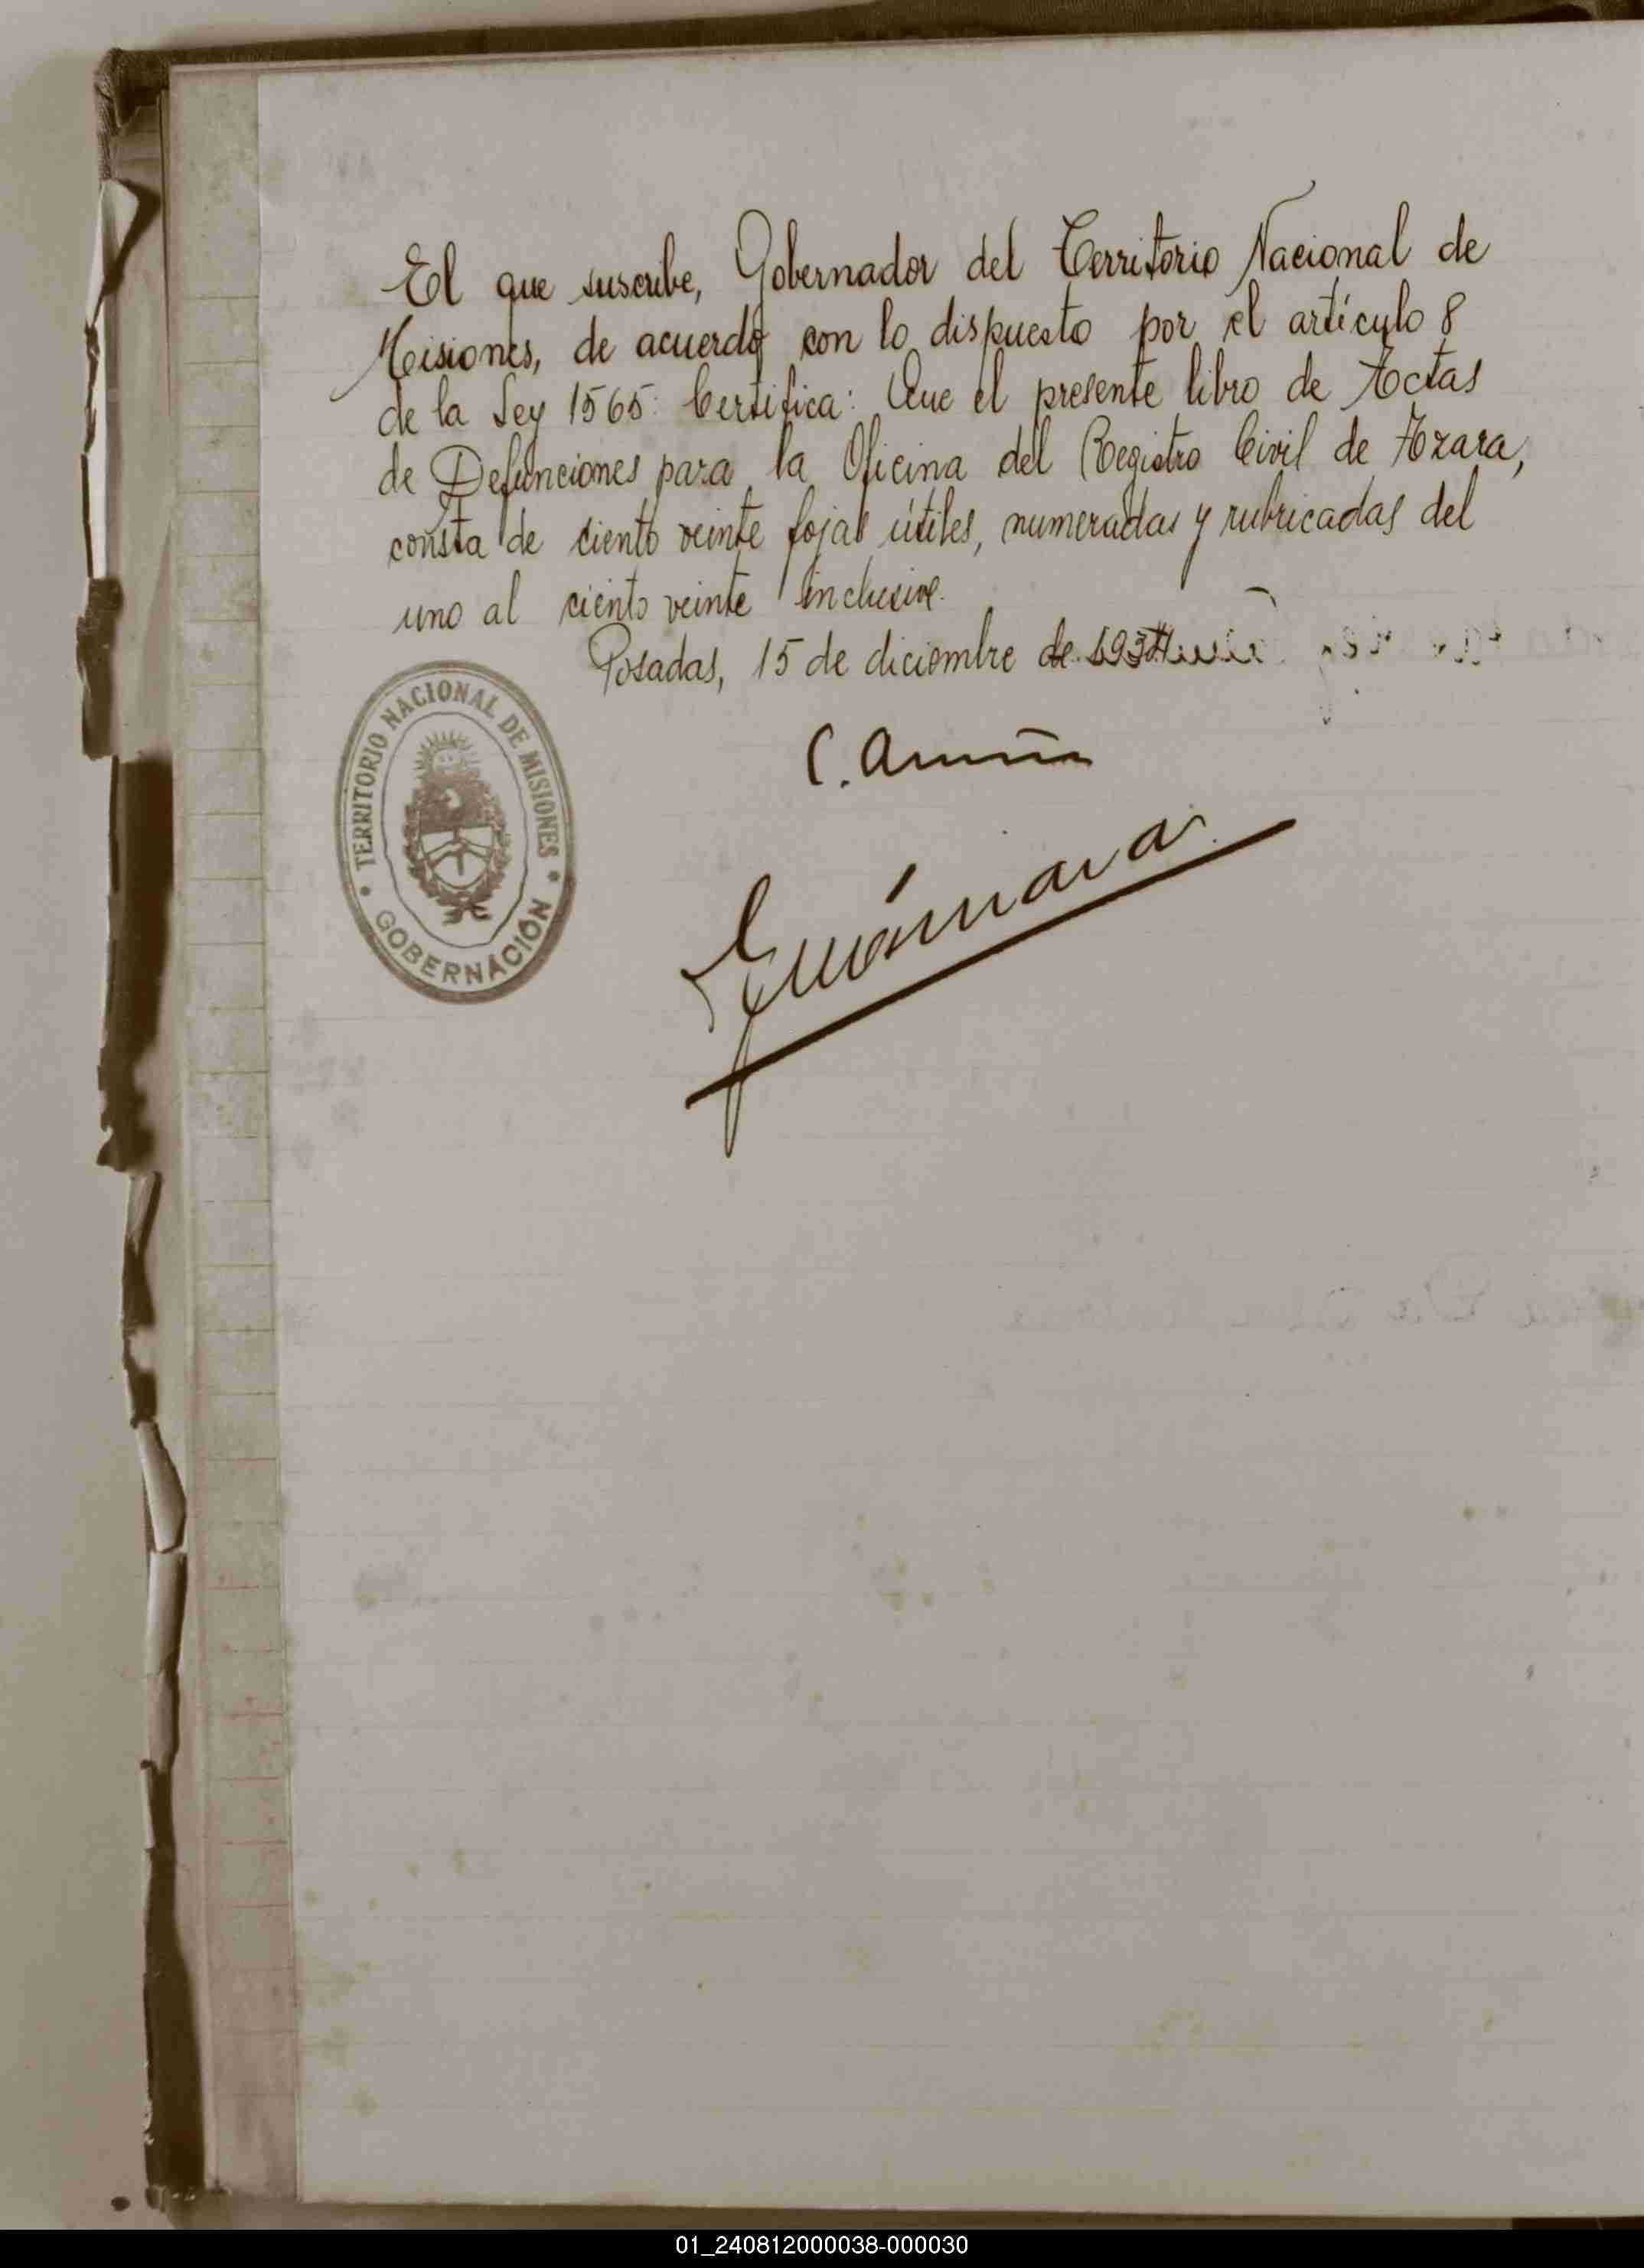 El que suscribe, Gobernador del Territorio Nacional de
Misiones, de acuerdo con lo dispuesto por el artículo 8
de la Ley 1565: Certifica: Que el presente libro de Actas
de Defunciones para la Oficina del Registro Civil de Azara,
consta de ciento veinte fojas útiles, numeradas y rubricadas del
uno al ciento veinte inclusive.
Posadas, 15 de diciembre de
TERRITORIO NACIONAL DE MISIONES
GOBERNACIÓN
C.
01_240812000038-000030